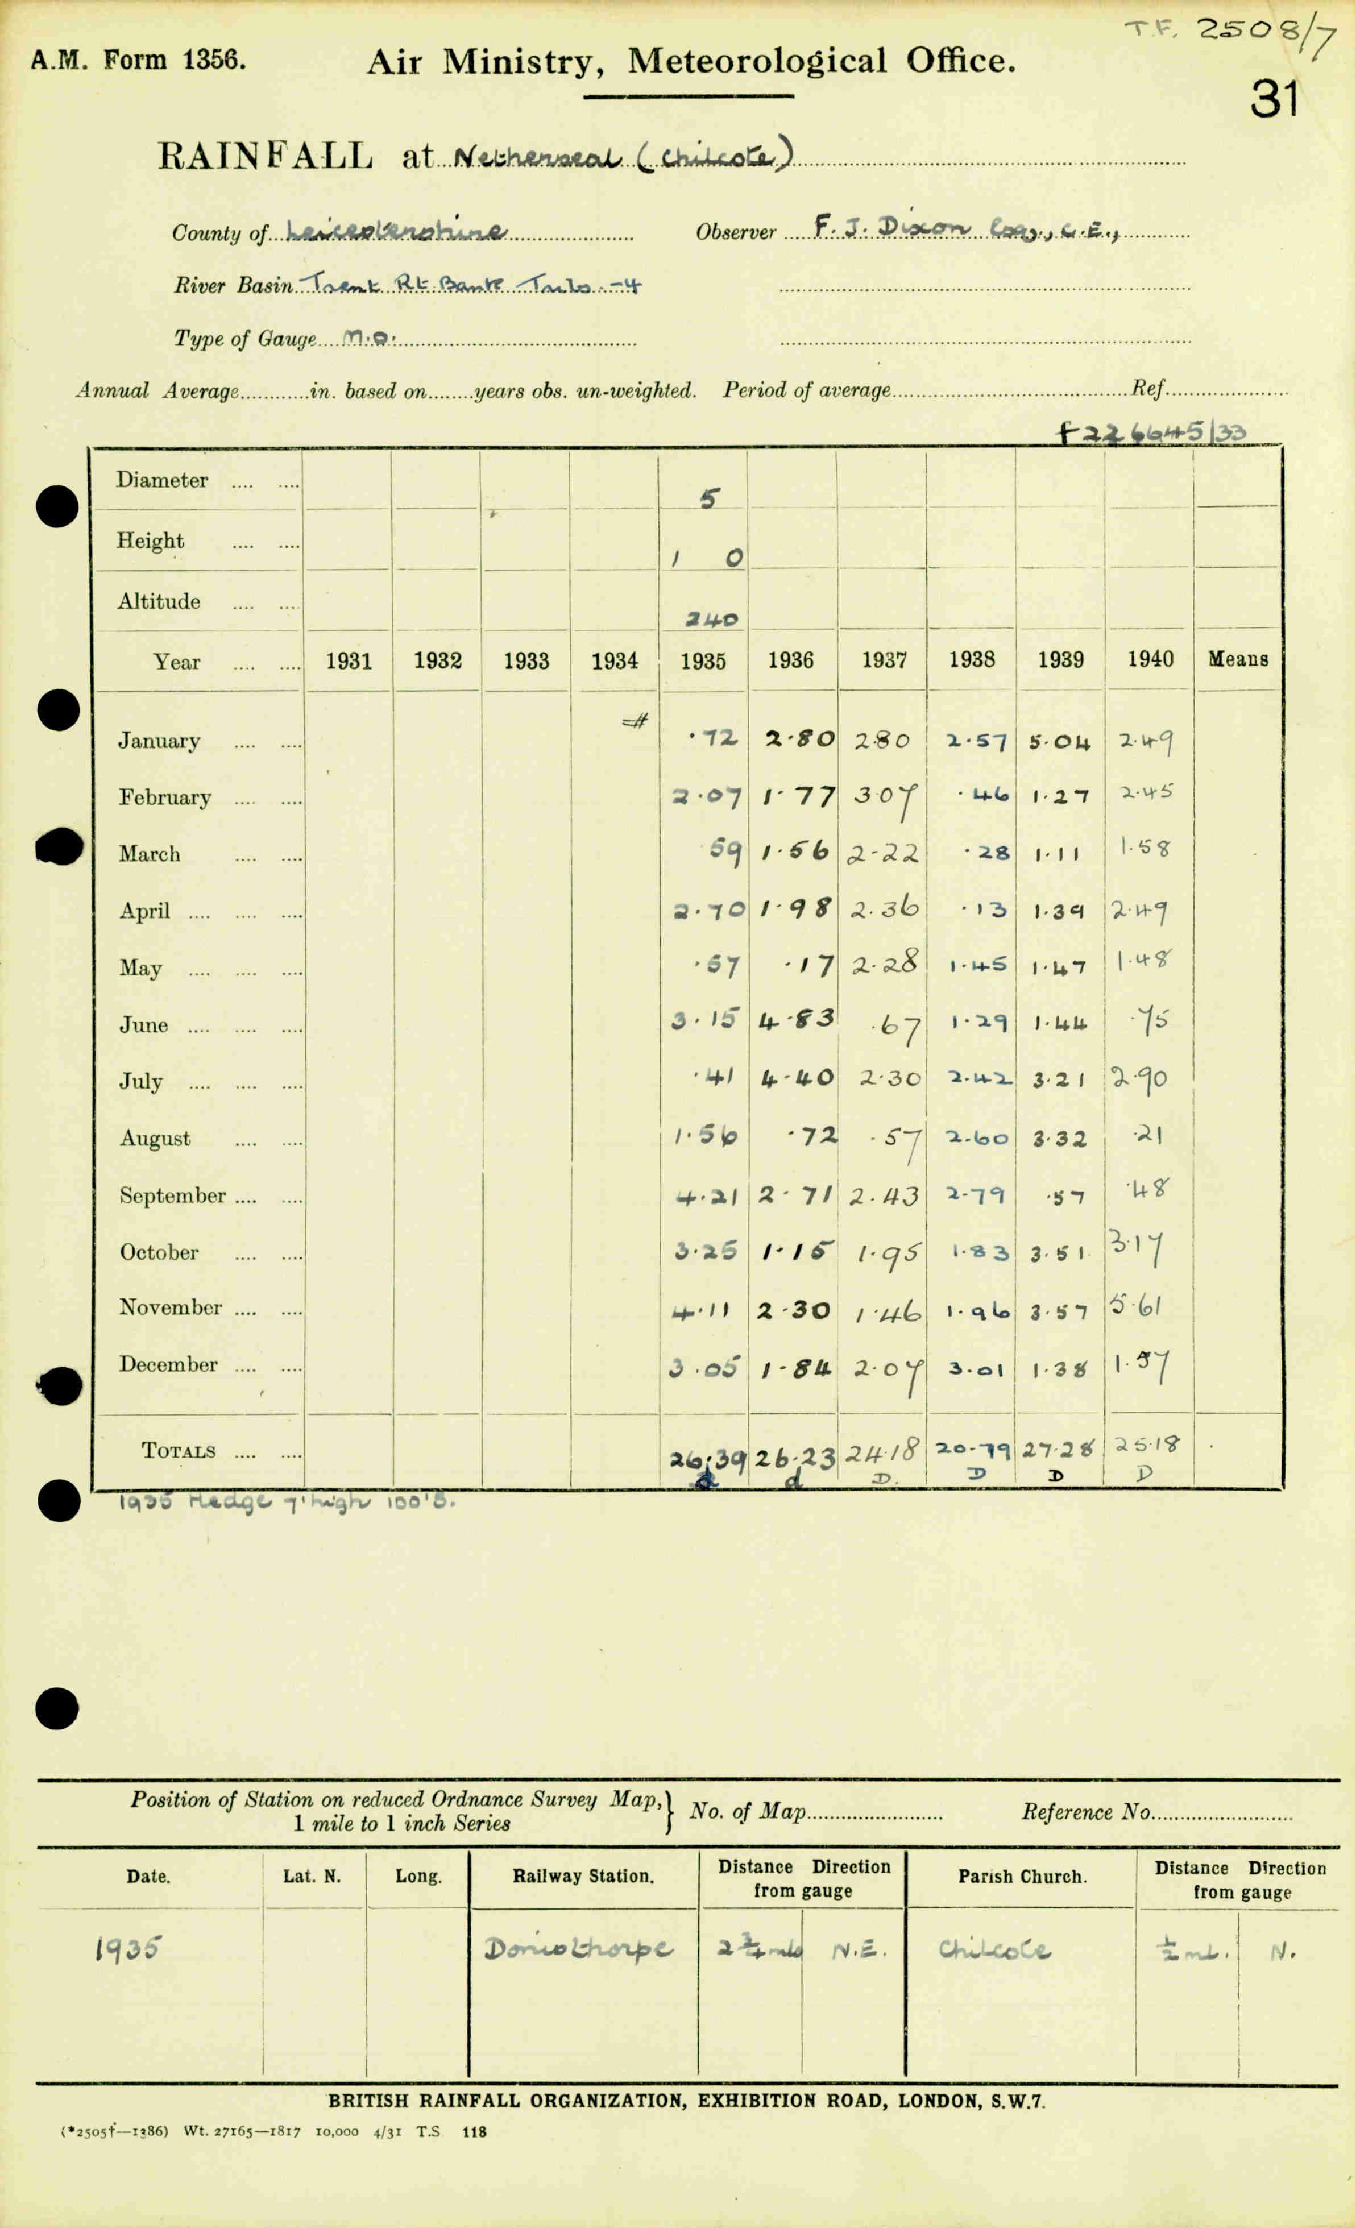 T.F. 2508/7
A.M. Form 1356. Air Ministry, Meteorological Office.
31
RAINFALL at Netherseal (Chilcote)
County of Leicestershire Observer F. J. Dixon Esq., C.E.,
River Basin Trent Rt Bank Tribs -4
Type of Gauge M.O.
Annual Average............in. based on........years obs. un-weighted. Period of average........................Ref.....................
F226645/33
Diameter .... .... 5
Height .... .... 1 0
Altitude .... .... 240
Year .... .... 1931 1932 1933 1934 1935 1936 1937 1938 1939 1940 Means
January .... .... ·72 2·80 2·80 2·57 5·04 2·49
February .... .... 2·07 1·77 3·07 ·46 1·27 2·45
March .... .... 59 1·56 2·22 ·28 1·11 1·58
April .... .... .... 2·70 1·98 2·36 ·13 1·39 2·49
May .... .... .... ·57 ·17 2·28 1·45 1·47 1·48
June .... .... .... 3·15 4·83 ·67 1·29 1·44 ·75
July .... .... .... ·41 4·40 2·30 2·42 3·21 2·90
August .... .... 1·56 ·72 ·57 2·60 3·32 ·21
September .... .... 4·21 2·71 2·43 2·79 ·57 ·48
October .... .... 3·25 1·15 1·95 1·83 3·51 3·17
November .... .... 4·11 2·30 1·46 1·96 3·57 5·61
December .... .... 3·05 1·84 2·07 3·01 1·38 1·57
TOTALS .... .... 26·39 26·23 24·18 20·79 27·28 25·18
d d D. D D D
1935 Hedge 7' high 100' S.
Position of Station on reduced Ordnance Survey Map, } No. of Map........................ Reference No.........................
1 mile to 1 inch Series
Date. Lat. N. Long. Railway Station. Distance Direction from gauge Parish Church. Distance Direction from gauge
1935 Donisthorpe 2¾ mls N.E. Chilcote ½ ml. N.
BRITISH RAINFALL ORGANIZATION, EXHIBITION ROAD, LONDON, S.W.7.
(*2505†—1386) Wt. 27165—1817 10,000 4/31 T.S. 118